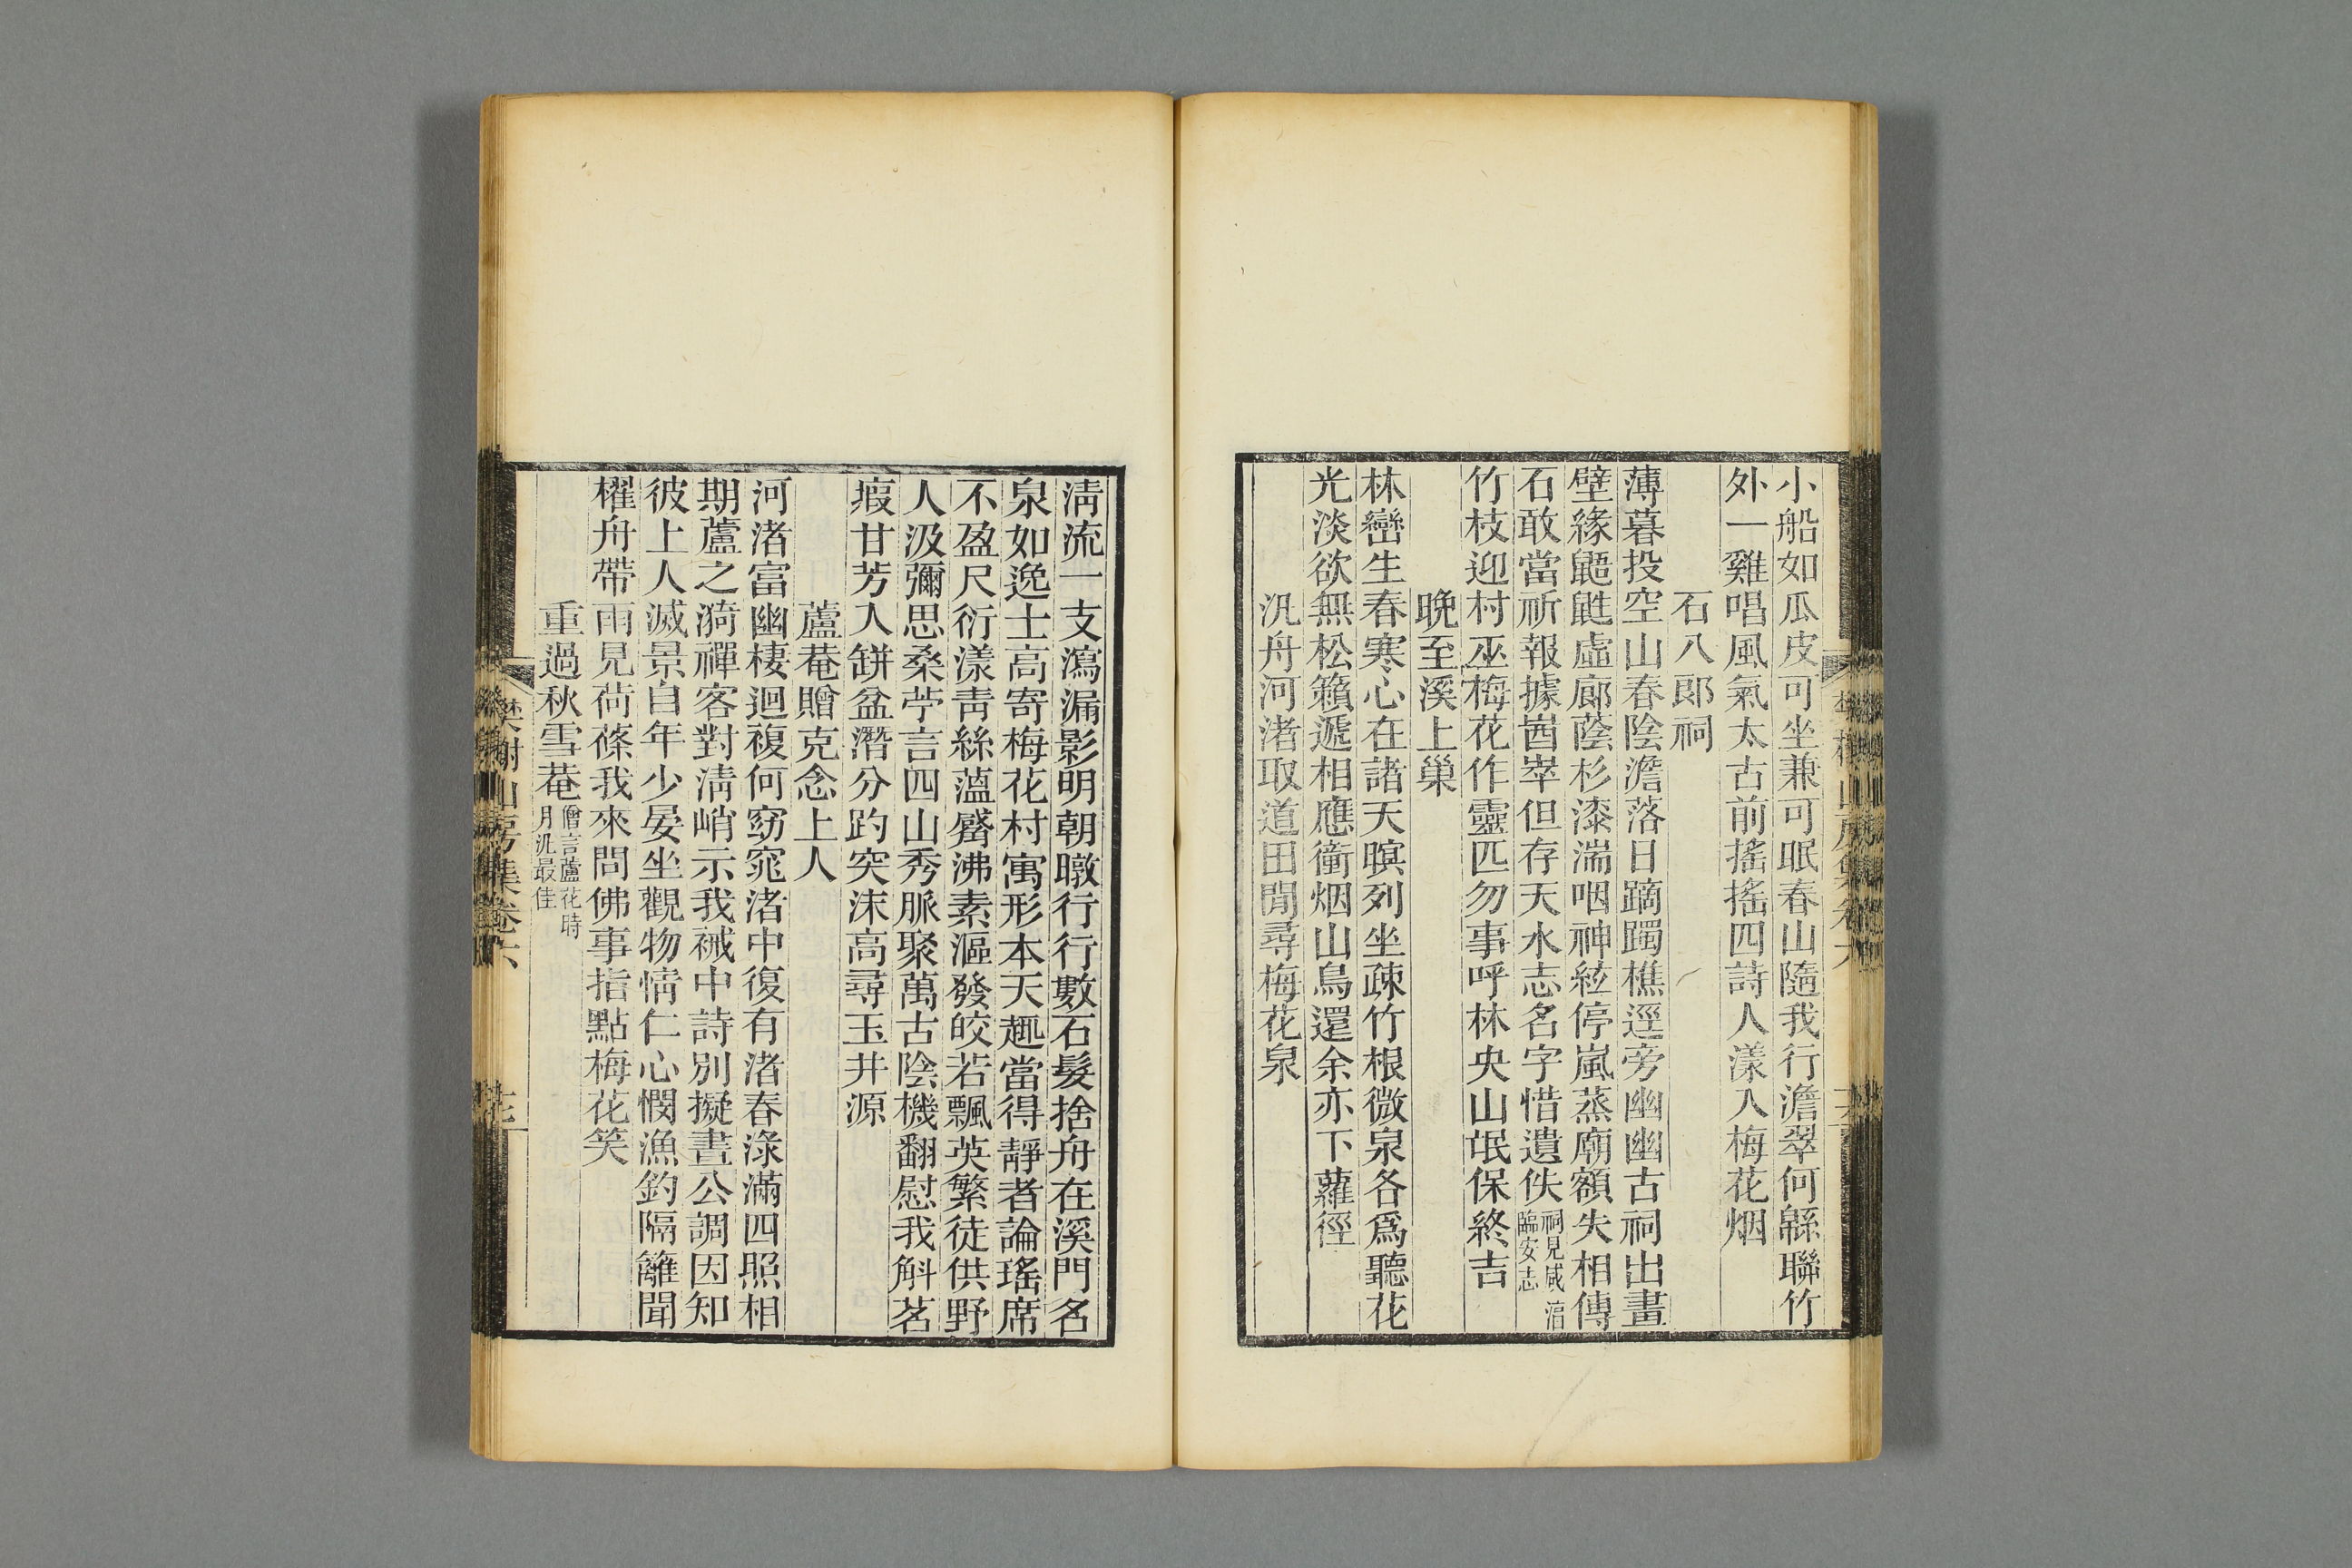 小船如瓜皮可坐兼可眠春山隨我行澹翠何緜聯竹
外一雞唱風氣太古前搖搖四詩人漾入梅花烟
石八郎祠
薄暮投空山春陰澹落日蹢躅樵逕旁幽幽古祠出畫
壁緣鼯鼪虛廊蔭杉漆湍咽神絃停嵐蒸廟額失相傳
石敢當祈報據酋崒但存天水志名字惜遺佚祠見咸淳
臨安志
竹枝迎村巫梅花作靈匹勿事呼林央山氓保終吉
晚至溪上巢
林巒生春寒心在諸天暝列坐疎竹根微泉各爲聽花
光淡欲無松籟遞相應衝烟山鳥還余亦下蘿徑
汎舟河渚取道田間尋梅花泉
淸流一支瀉漏影明朝暾行行數石髮捨舟在溪門名
泉如逸士高寄梅花村寓形本天趣當得靜者論瑤席
不盈尺衍漾靑絲蘊觱沸素漚發皎若飄英繁徒供野
人汲彌思桑苧言四山秀脈聚萬古陰機翻慰我斛茗
瘕甘芳入缾盆潛分趵突沫高尋玉井源
蘆菴贈克念上人
河渚富幽棲迴複何窈窕渚中復有渚春淥滿四照相
期蘆之漪禪客對淸峭示我裓中詩別擬晝公調因知
彼上人滅景自年少晏坐觀物情仁心憫漁釣隔籬聞
櫂舟帶雨見荷蓧我來問佛事指點梅花笑
重過秋雪菴僧言蘆花時
月汎最佳
樊榭山房集卷六